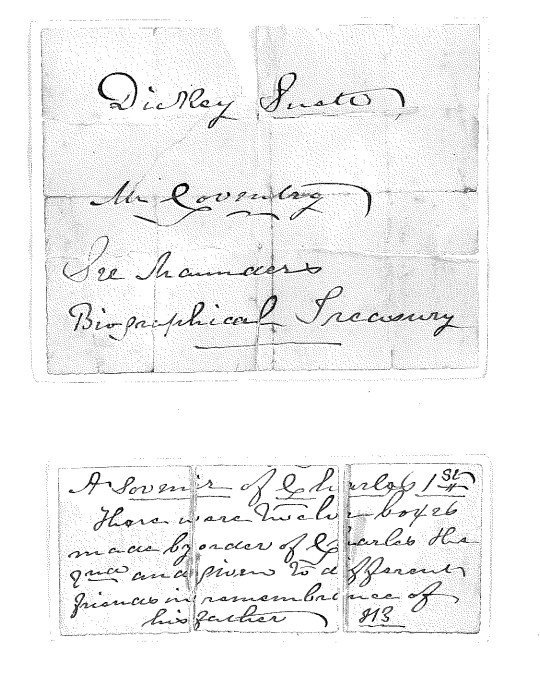 Dickey
Mr Coventry
See Maunders
Biographical Treasury
A Sovenir of Charles 1St
There were Twelve boxes
made by order of Charles the
2nd and given to different
friends in remembrance of
his father 813